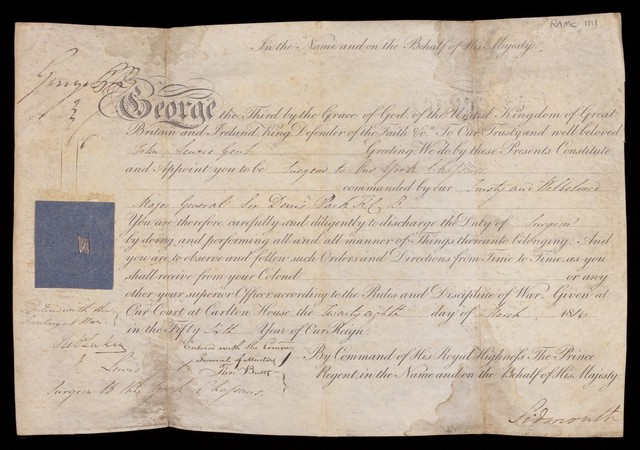 RAMC 1111
In the Name and on the Behalf of His Majesty.
George P R
George the Third by the Grace of God, of the United Kingdom of Great
Britain and Ireland, King, Defender of the Faith &c. To Our Trusty and well beloved
John Lewis Gent Greeting: We do by these Presents Constitute
and Appoint you to be Surgeon to Our York Chasseurs
commanded by our Trusty and Welbeloved
Major General Sir Denis Pack K.C.B.
You are therefore carefully and diligently to discharge the Duty of Surgeon
by doing, and performing all and all manner of Things thereunto belonging. And
you are to observe and follow such Orders and Directions from Time to Time as you
shall receive from your Colonel or any
other your superior Officer according to the Rules and Discipline of War. Given at
Our Court at Carlton House the Twenty eighth day of March 1816
in the Fifty Sixth Year of Our Reign.
By Command of His Royal Highness The Prince
Regent, in the Name and on the Behalf of His Majesty
Sidmouth
Entered with the
Secretary at War
Entered with the Commy
General of Musters
Lewis
Surgeon to the York Chasseurs.